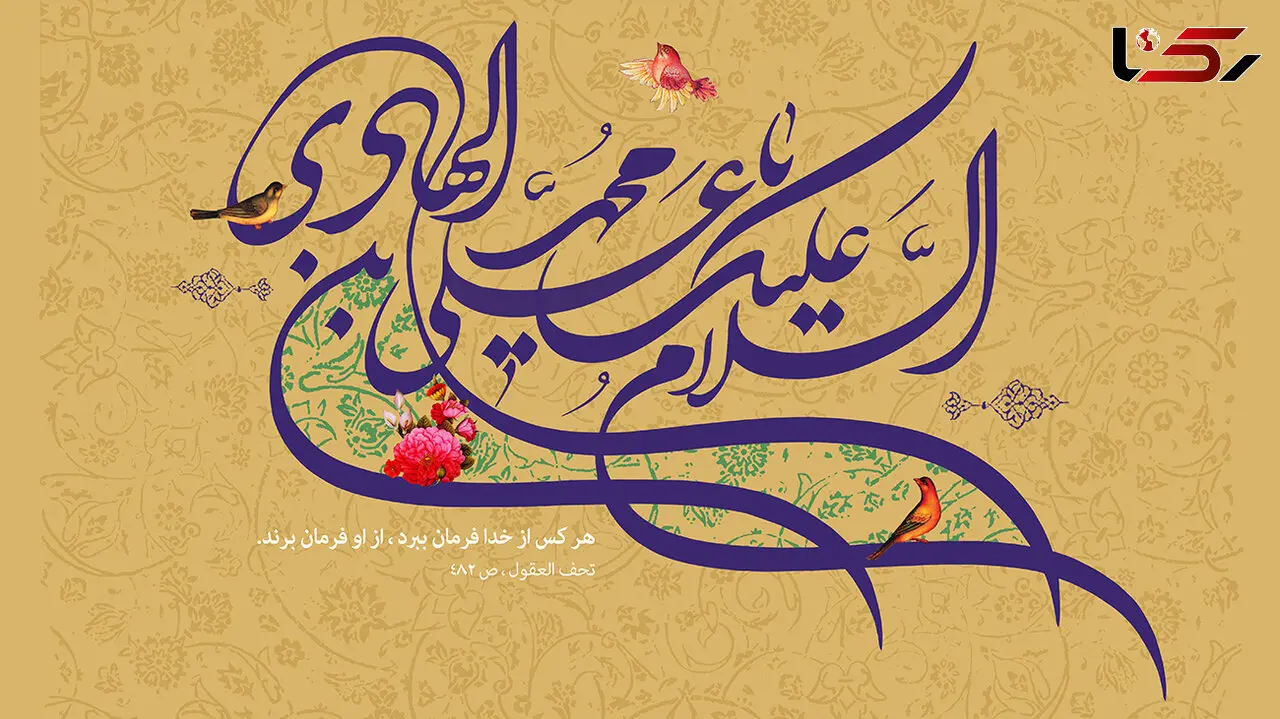 رکنا
السلام علیک یا علی بن محمد الهادی
هر کس از خدا فرمان ببرد، از او فرمان برند.
تحف العقول، ص ۴۸۲